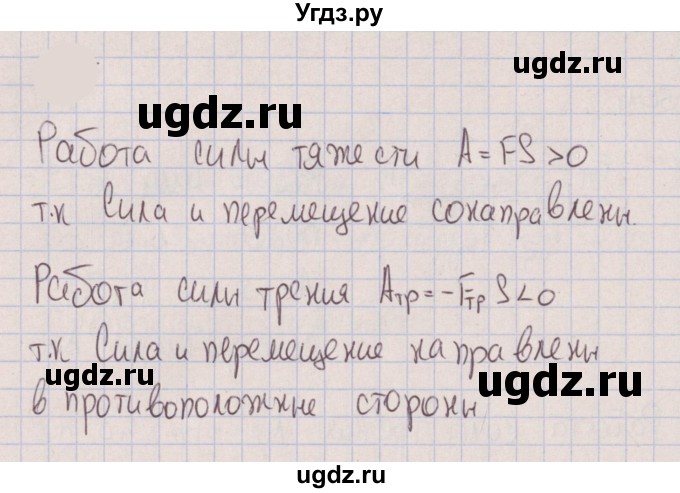 Угдз.ру
ugdz.ru
ugdz.ru
Работа силы тяжести A = FS > 0
т.к Сила и перемещение сонаправлены.
Работа силы трения Aтр = -Fтр S < 0
т.к Сила и перемещение направлены
ugdz.ru
ugdz.ru
в противоположные стороны
ugdz.ru